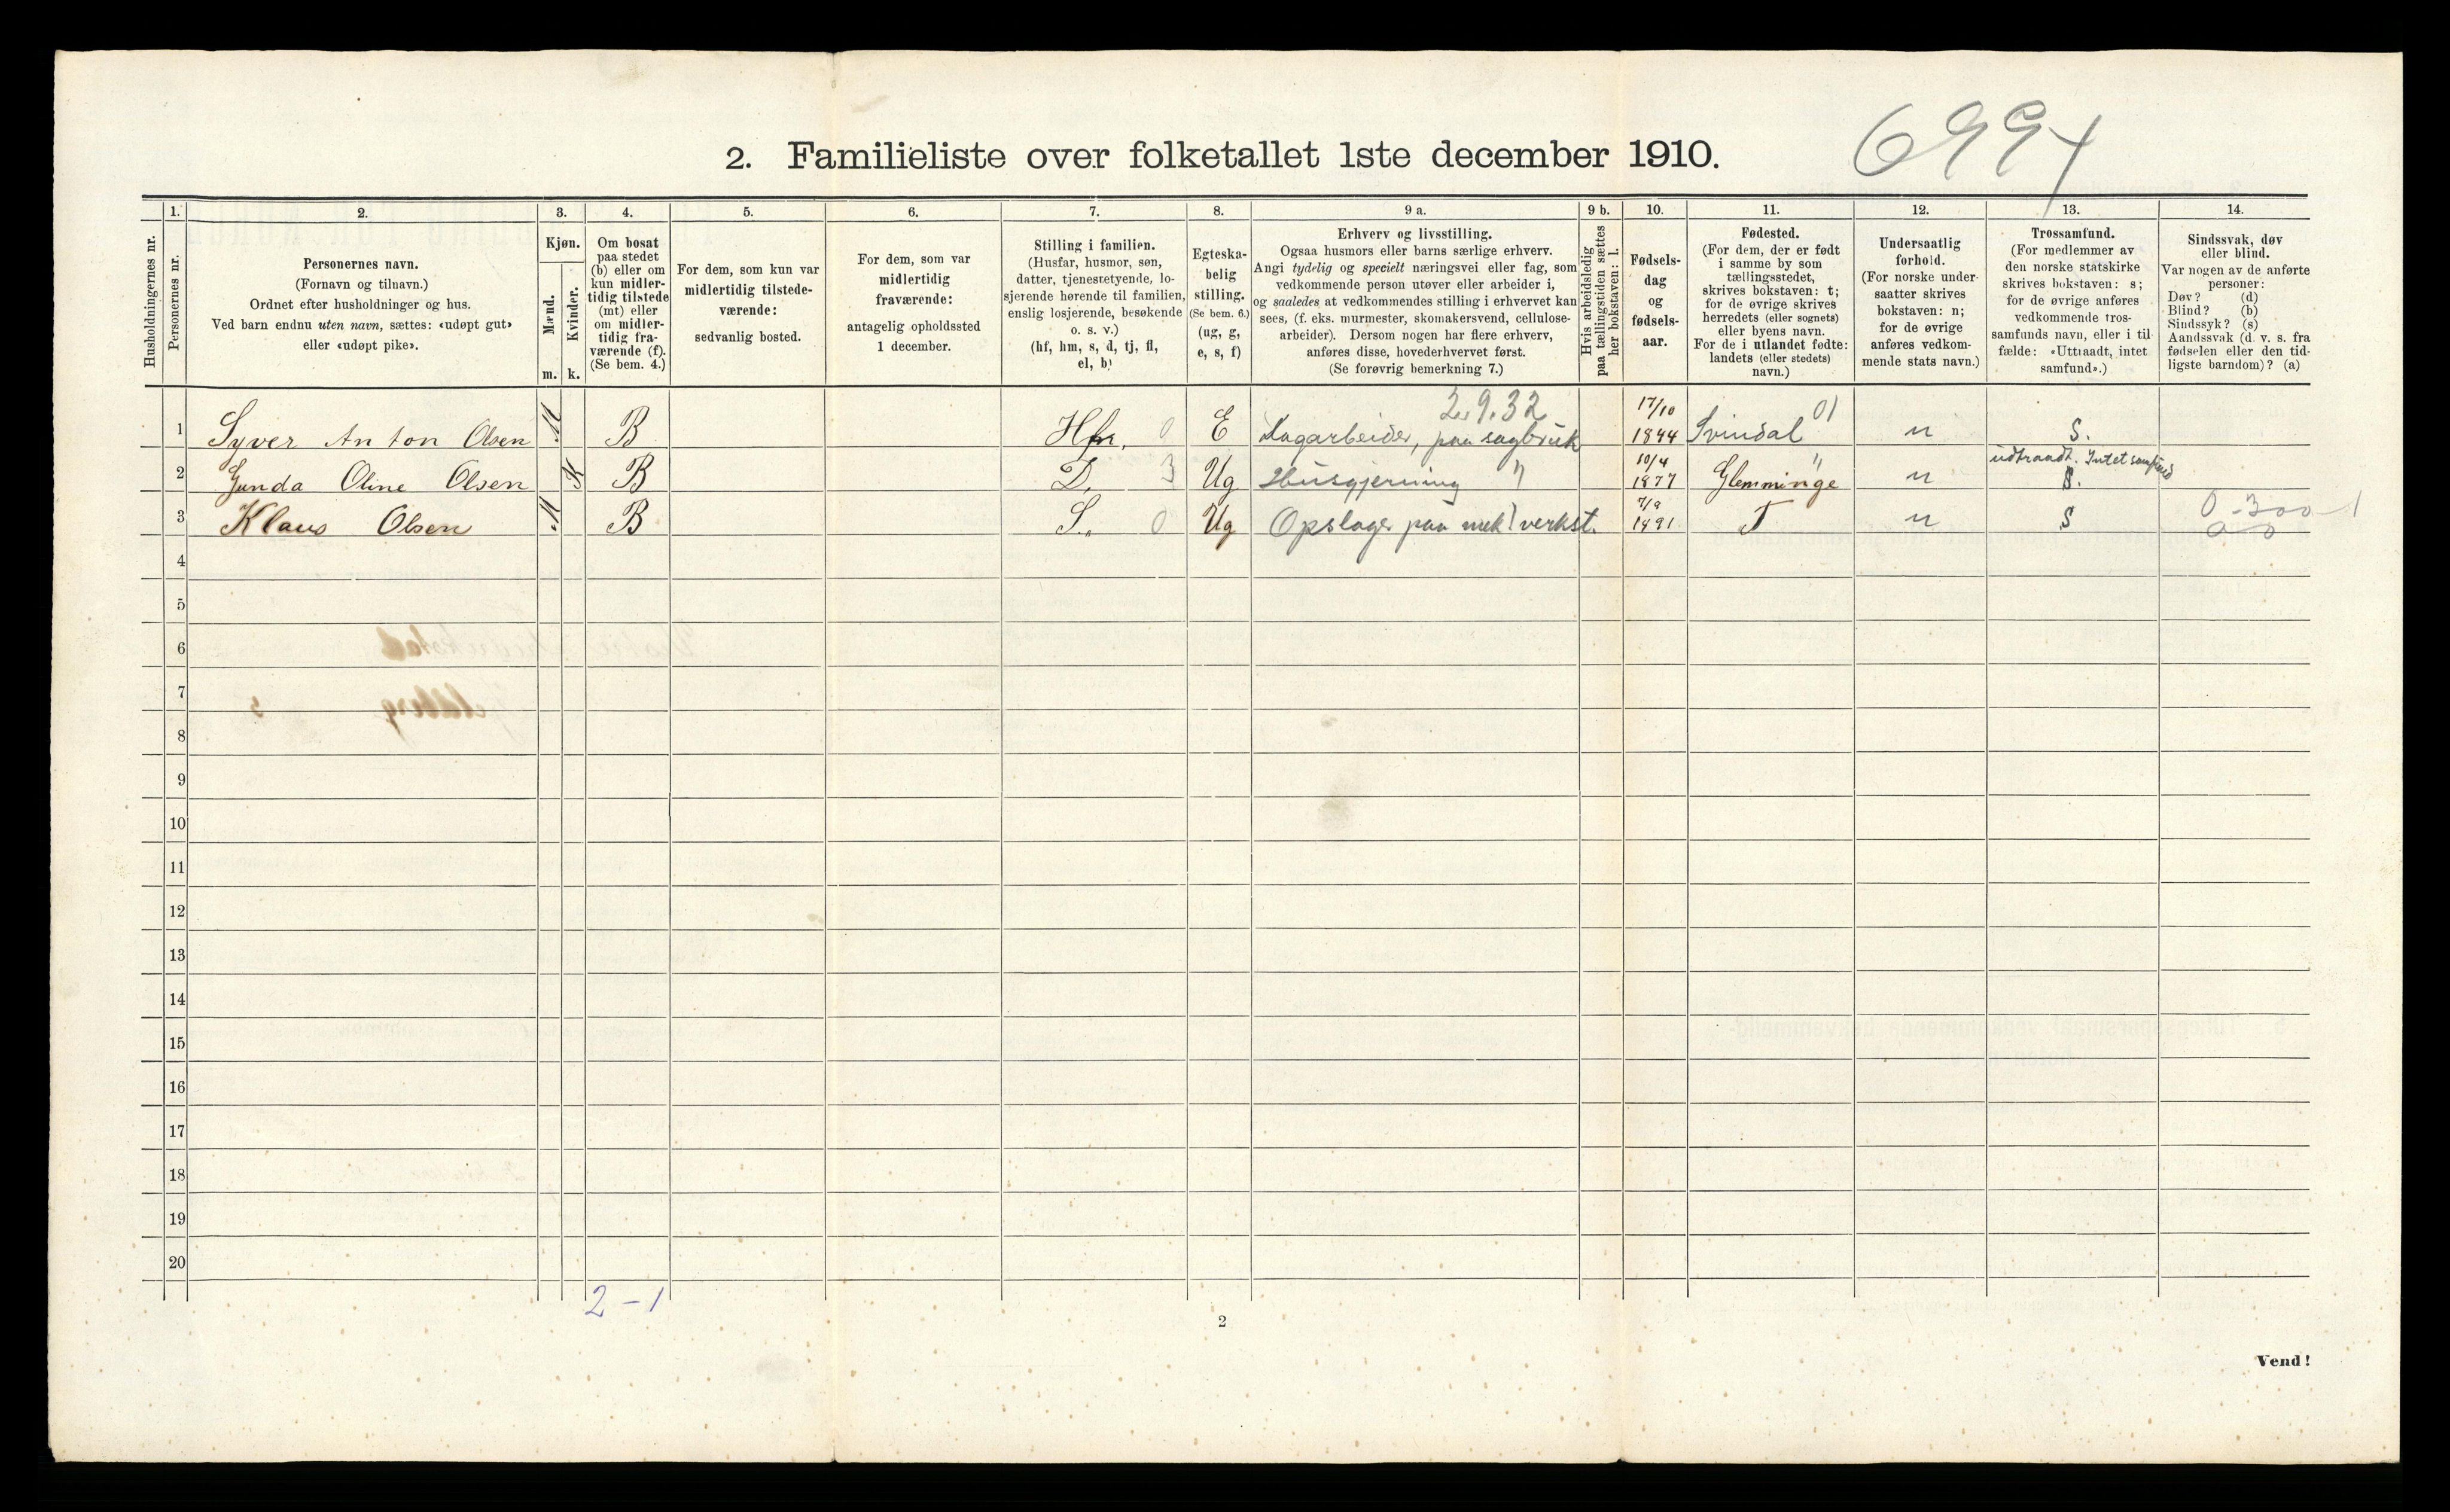 2. Familieliste over folketallet 1ste december 1910.
6994
1. 2. 3. 4. 5. 6. 7. 8. 9 a. 9 b. 10. 11. 12. 13. 14.
Husholdningernes nr.
Personernes nr.
Personernes navn.
(Fornavn og tilnavn.)
Ordnet efter husholdninger og hus.
Ved barn endnu uten navn, sættes: «udøpt gut»
eller «udøpt pike».
Kjøn.
Mænd.
Kvinder.
m. k.
Om bosat
paa stedet
(b) eller om
kun midler-
tidig tilstede
(mt) eller
om midler-
tidig fra-
værende (f).
(Se bem. 4.)
For dem, som kun var
midlertidig tilstede-
værende:
sedvanlig bosted.
For dem, som var
midlertidig
fraværende:
antagelig opholdssted
1 december.
Stilling i familien.
(Husfar, husmor, søn,
datter, tjenestetyende, lo-
sjerende hørende til familien,
enslig losjerende, besøkende
o. s. v.)
(hf, hm, s, d, tj, fl,
el, b)
Egteska-
belig
stilling.
(Se bem. 6.)
(ug, g,
e, s, f)
Erhverv og livsstilling.
Ogsaa husmors eller barns særlige erhverv.
Angi tydelig og specielt næringsvei eller fag, som
vedkommende person utøver eller arbeider i,
og saaledes at vedkommendes stilling i erhvervet kan
sees, (f. eks. murmester, skomakersvend, cellulose-
arbeider). Dersom nogen har flere erhverv,
anføres disse, hovederhvervet først.
(Se forøvrig bemerkning 7.)
Hvis arbeidsledig
paa tællingstiden sættes
her bokstaven: l.
Fødsels-
dag
og
fødsels-
aar.
Fødested.
(For dem, der er født
i samme by som
tællingsstedet,
skrives bokstaven: t;
for de øvrige skrives
herredets (eller sognets)
eller byens navn.
For de i utlandet fødte:
landets (eller stedets)
navn.)
Undersaatlig
forhold.
(For norske under-
saatter skrives
bokstaven: n;
for de øvrige
anføres vedkom-
mende stats navn.)
Trossamfund.
(For medlemmer av
den norske statskirke
skrives bokstaven: s;
for de øvrige anføres
vedkommende tros-
samfunds navn, eller i til-
fælde: «Uttraadt, intet
samfund».)
Sindssvak, døv
eller blind.
Var nogen av de anførte
personer:
Døv? (d)
Blind? (b)
Sindssyk? (s)
Aandssvak (d. v. s. fra
fødselen eller den tid-
ligste barndom)? (a)
2.9.32 17/10 01
1 Syver Anton Olsen M B Hf. 0 E Lagarbeider, paa sagbruk 1844 Svindal n S.
10/4 " udtraadt. Intet samfund
2 Gunda Oline Olsen K B D. 3 Ug Husgjerning " 1877 Glemminge n S.
7/9 0-300-1
3 Klaus Olsen M B S. 0 Ug Opslager paa mek verkst. 1891 T n S 0-0
4
5
6
7
8
9
10
11
12
13
14
15
16
17
18
19
20
2-1
2
Vend!